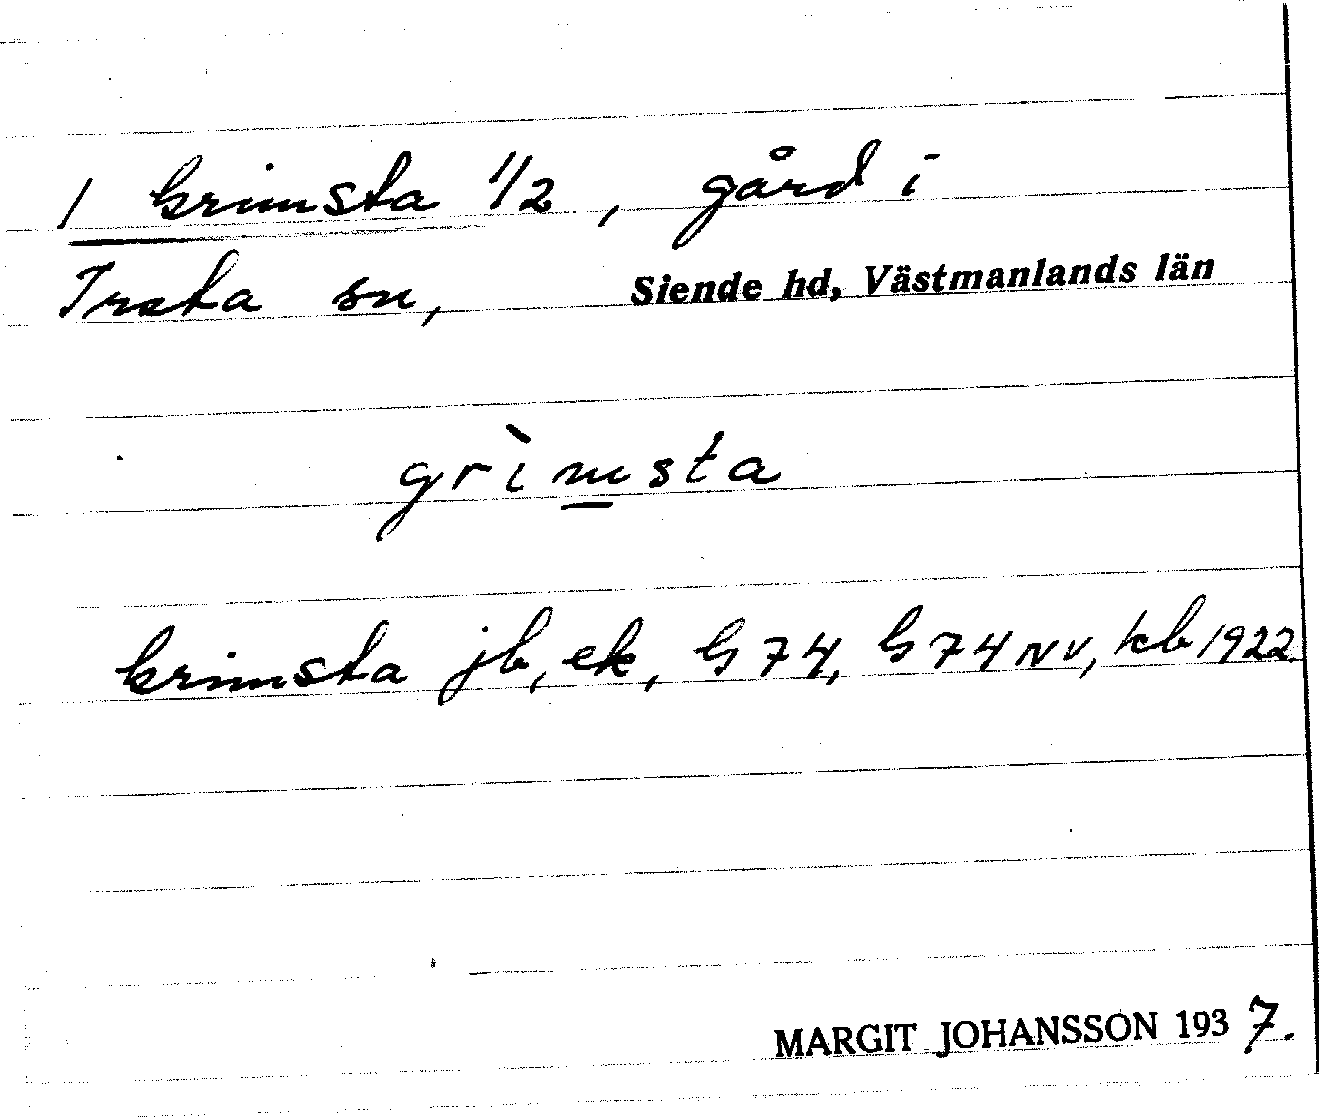 1 Grimsta 1/2, gård i
Irsta sn, Siende hd, Västmanlands län
grìmsta
Grimsta jb, ek, G 74, G 74 NV, kb 1922.
MARGIT JOHANSSON 1937.